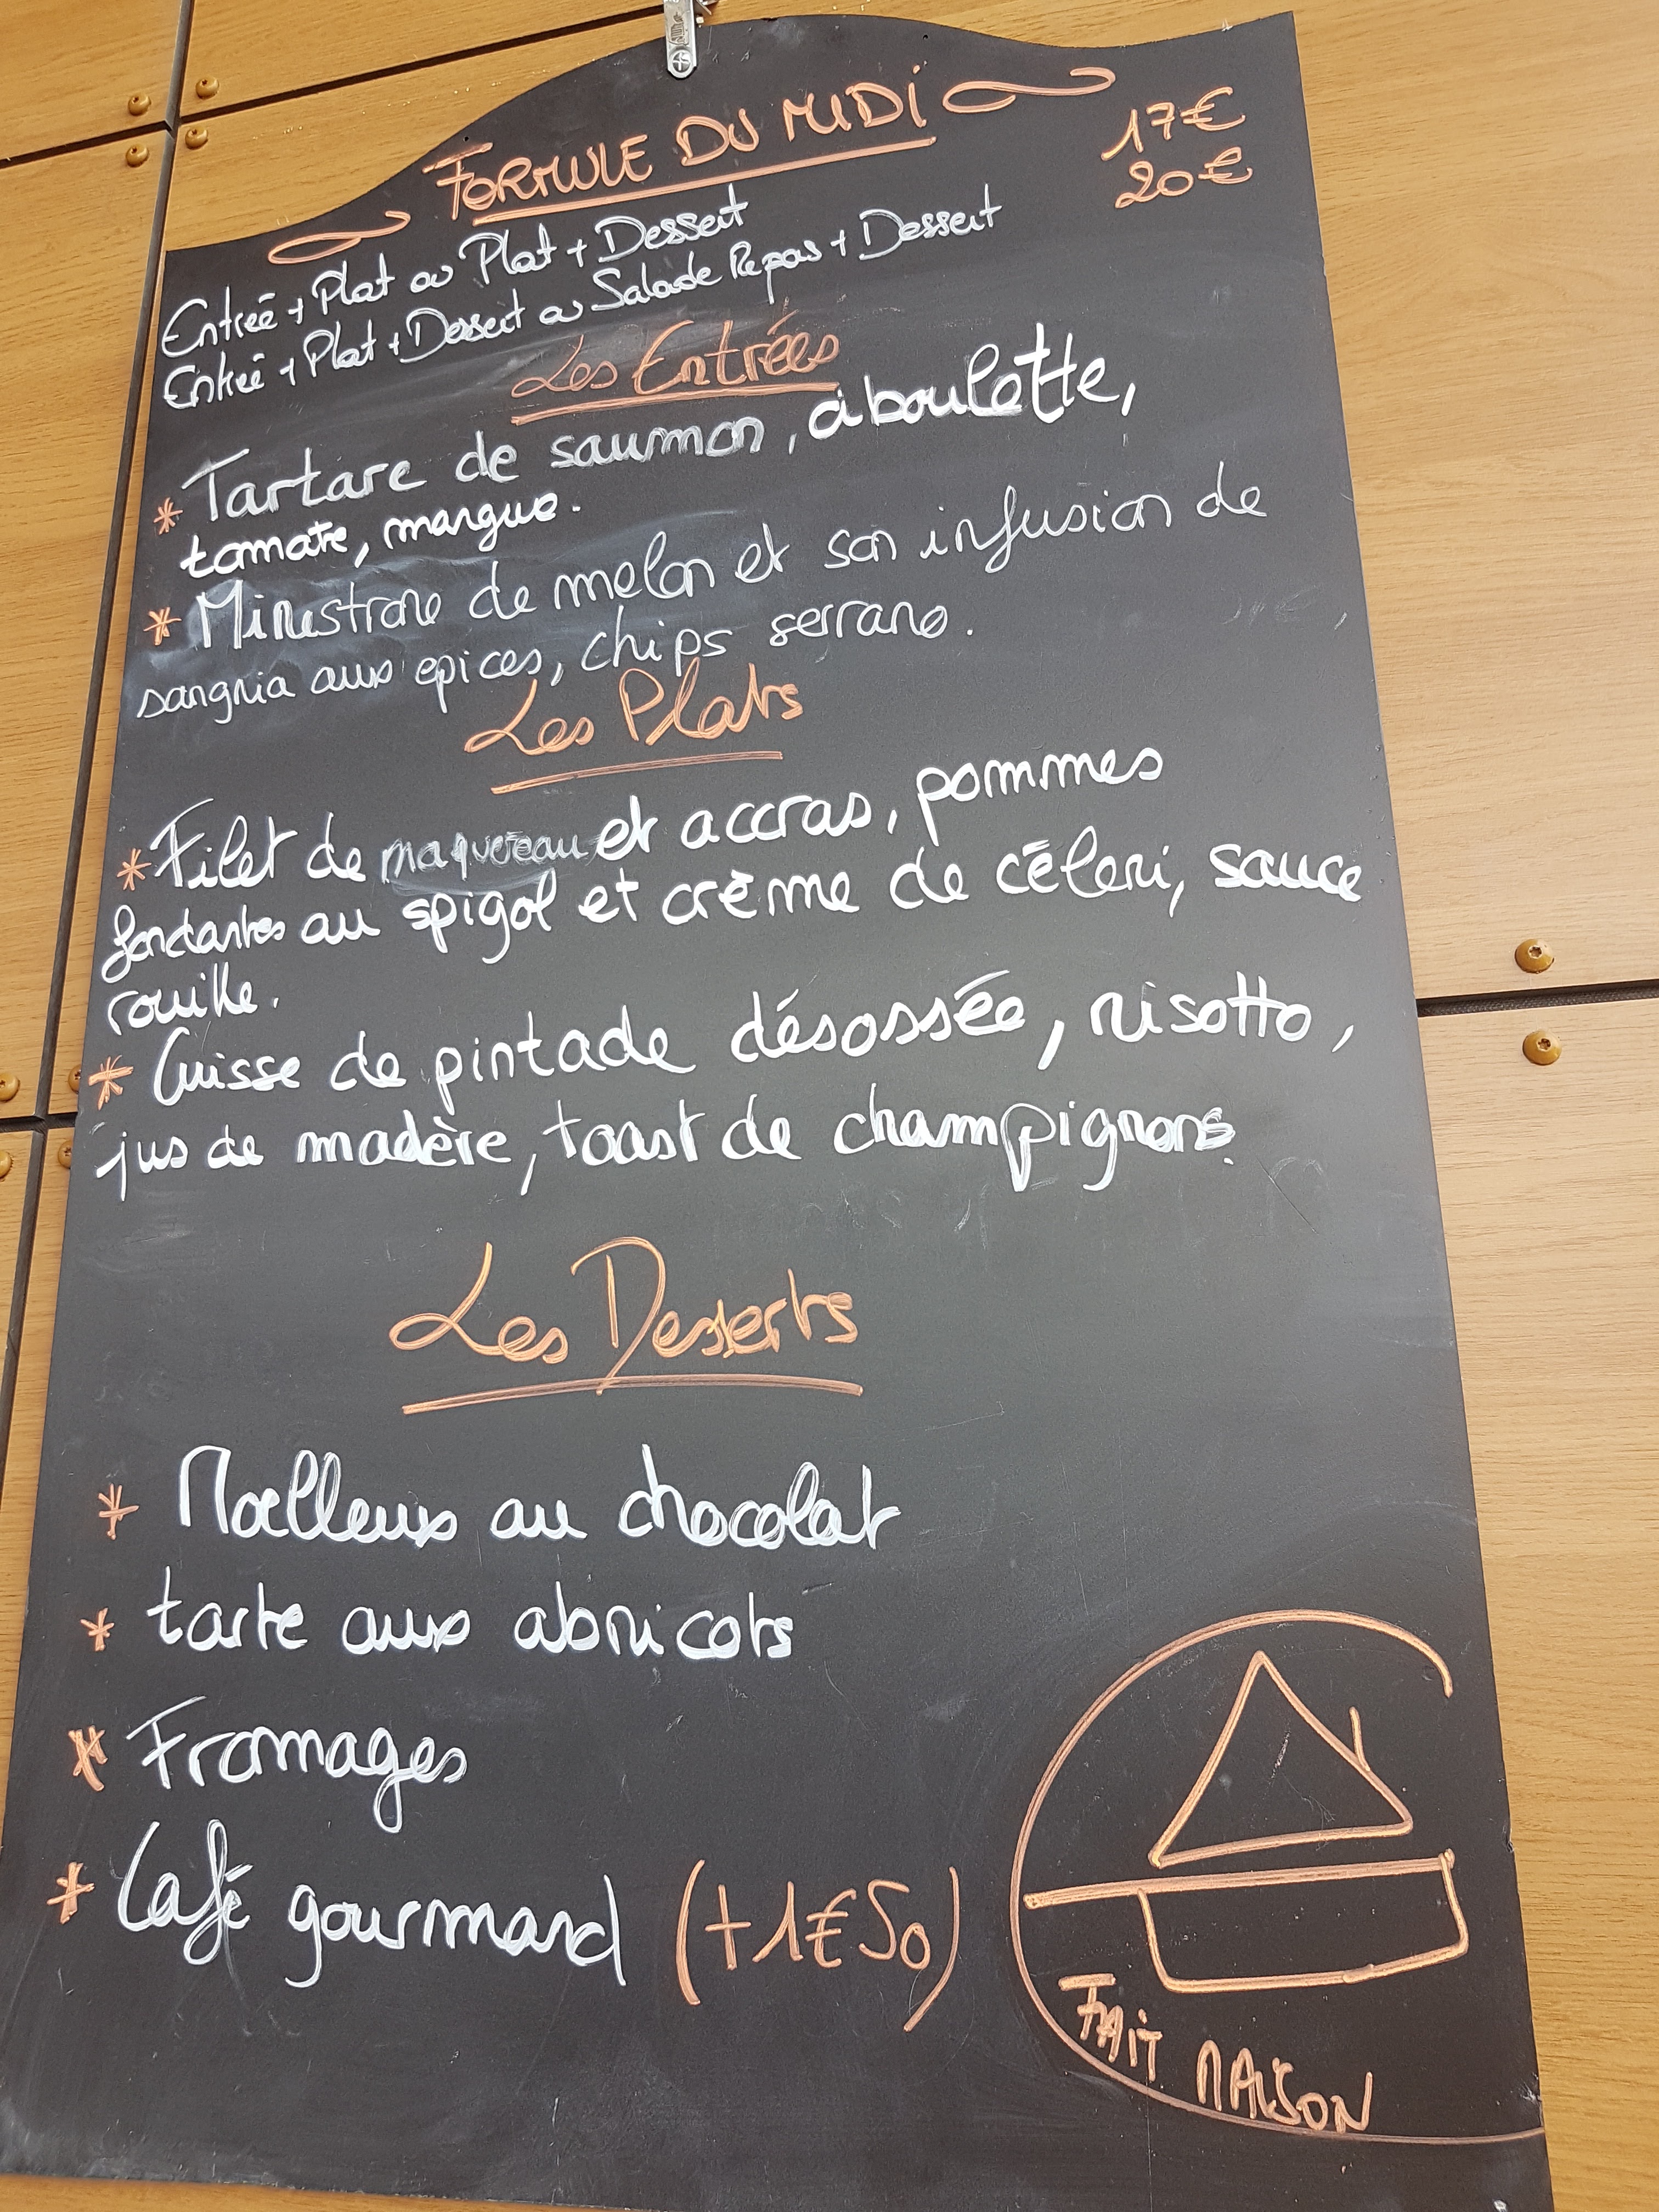 FORMULE DU MIDI
Entrée + Plat ou Plat + Dessert 17€
Entrée + Plat + Dessert ou Salade Repas + Dessert 20€
Les Entrées
* Tartare de saumon, ciboulette,
tomate, mangue.
* Minestrone de melon et son infusion de
sangria aux epices, chips serrano.
Les Plats
* Filet de maquereau et accras, pommes
fondantes au spigol et crème de céleri, sauce
rouille.
* Cuisse de pintade désossée, risotto,
jus de madère, toast de champignons.
Les Desserts
* Moelleux au chocolat
* tarte aux abricots
* Fromages
* Café gourmand (+1€50)
FAIT MAISON